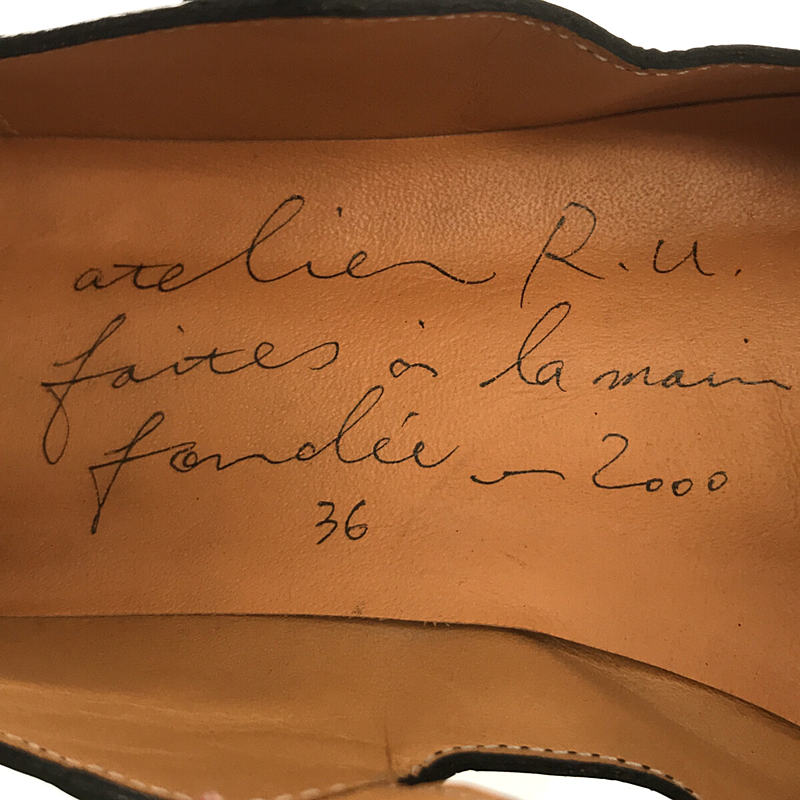 atelier R.U.
faites à la main
fondée en 2000
36